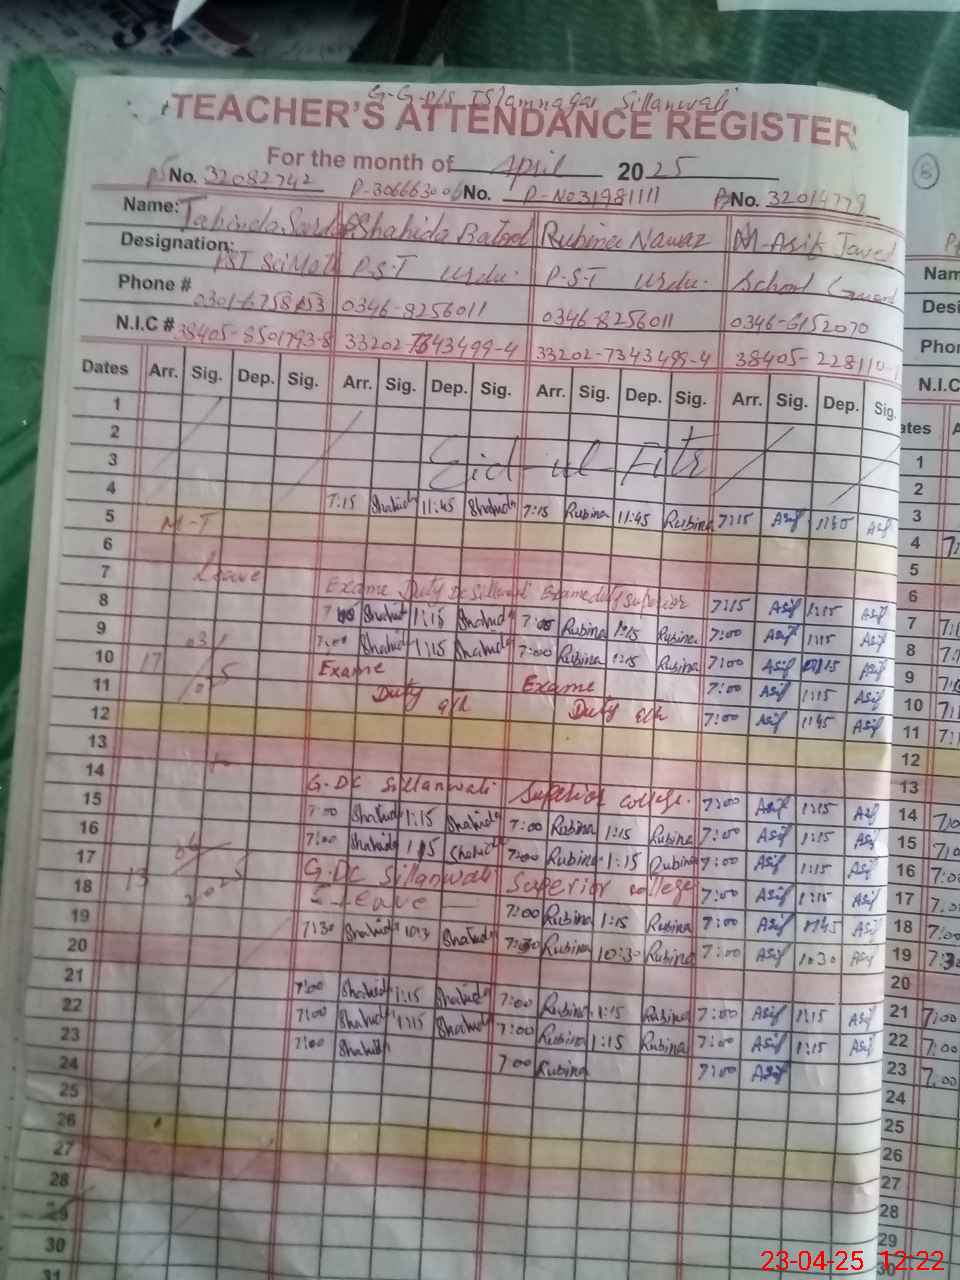 G-G-P/S Islamnagar Sillanwali
TEACHER'S ATTENDANCE REGISTER
For the month of April 2025
No. 32082742 P-30666300 No. P-No31981111 No. 32014779
Name: Shahida Batool Rubina Nawaz M-Asif Javed
Designation: PST Sci P.S.T Urdu. P-S-T Urdu. School Guard
Phone # 0346-8256011 0346-8256011 0346-6152070
N.I.C # 38405-8501793-8 33202-7343499-4 33202-7343499-4 38405-228110
Dates Arr. Sig. Dep. Sig. Arr. Sig. Dep. Sig. Arr. Sig. Dep. Sig. Arr. Sig. Dep. Sig.
1
2
3 Eid-ul-Fitr
4 7:15 Shahida 11:45 Shahida 7:15 Rubina 11:45 Rubina 7:15 Asif Asif
5 M-T
6
7 Leave Exame Duty Sillanwali Exame duty Superior 7:15 Asif 1:15 Asif
8 Shahida 1:15 Shahida 7:00 Rubina 1:15 Rubina 7:00 Asif 1:15 Asif
9 7:00 Shahida 1:15 Shahida 7:00 Rubina 1:15 Rubina 7:00 Asif 1:15 Asif
10 17 Exame Exame 7:00 Asif 1:15 Asif
11 Duty Duty 7:00 Asif 11:45 Asif
12
13
14 G.DC Sillanwali Superior college. 7:00 Asif 1:15 Asif
15 7:00 Shahida 1:15 Shahida 7:00 Rubina 1:15 Rubina 7:00 Asif 1:15 Asif
16 7:00 Shahida 1:15 Shahida 7:00 Rubina 1:15 Rubina 7:00 Asif 1:15 Asif
17 G.DC Sillanwali Superior college 7:00 Asif 1:15 Asif
18 Leave 7:00 Rubina 1:15 Rubina 7:00 Asif Asif
19 7:30 Shahida Shahida 7:30 Rubina 10:30 Rubina 7:00 Asif 10:30 Asif
20
21 7:00 Shahida 1:15 Shahida 7:00 Rubina 1:15 Rubina 7:00 Asif 1:15 Asif
22 7:00 Shahida 1:15 Shahida 7:00 Rubina 1:15 Rubina 7:00 Asif 1:15 Asif
23 7:00 Shahida 7:00 Rubina 7:00 Asif
24
25
26
27
28
29
30
31
8
Nam
Desi
Phon
N.I.C
ates
1
2
3
4
5
6
7
8
9
10
11
12
13
14
15
16
17
18
19
20
21 7:00
22 7:00
23 7:00
24
25
26
27
28
29
30
23-04-25 12:22